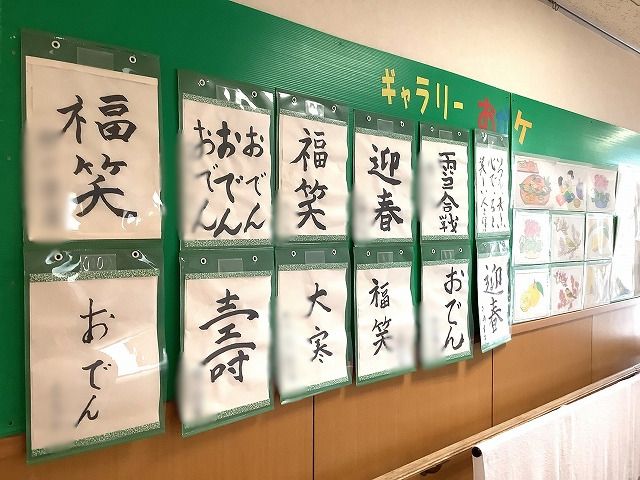 ギャラリー
福笑。
おでん
おでん
おでん
福笑
迎春
雪合戦
おでん
壽
大寒
福笑
おでん
迎春